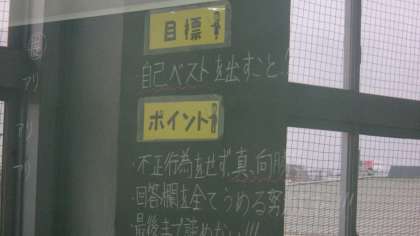 目標
自己ベストを出すこと!
ポイント
・不正行為をせず真、向
・回答欄を全てうめる努
最後まで諦めない!!!
アリ
アリ
アリ